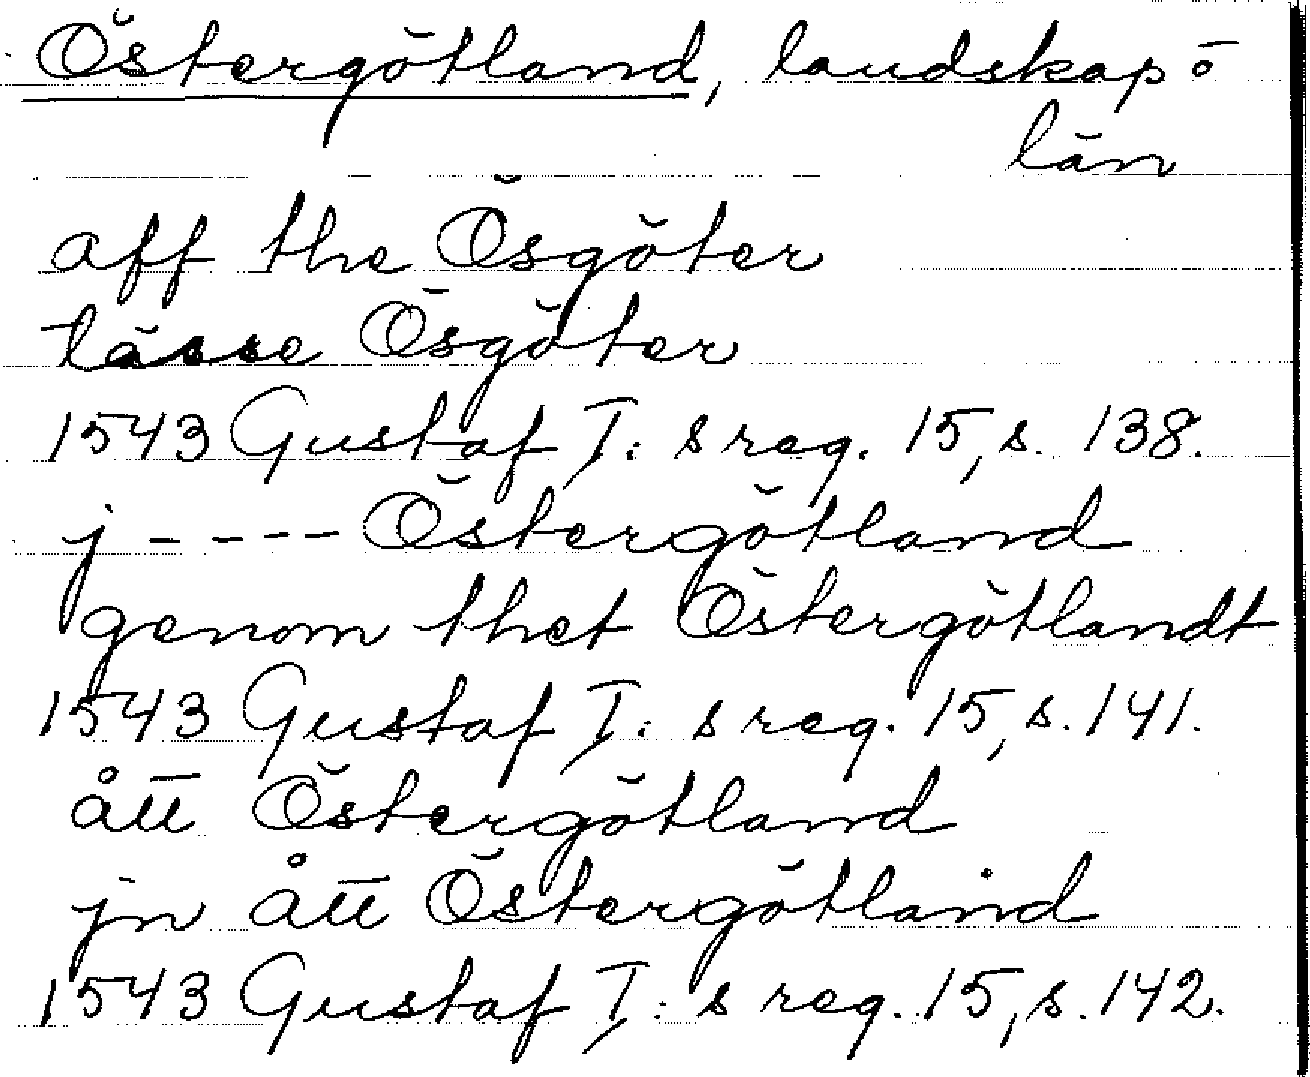 Östergötland, landskap o
län
aff the Ösgöter
tässe Ösgöter
1543 Gustaf I: s reg. 15, s. 138.
j - - - - Östergötland
genom thet Östergötlandt
1543 Gustaf I: s reg. 15, s. 141.
ått Östergötland
jn ått Östergötland
1543 Gustaf I: s reg. 15, s. 142.